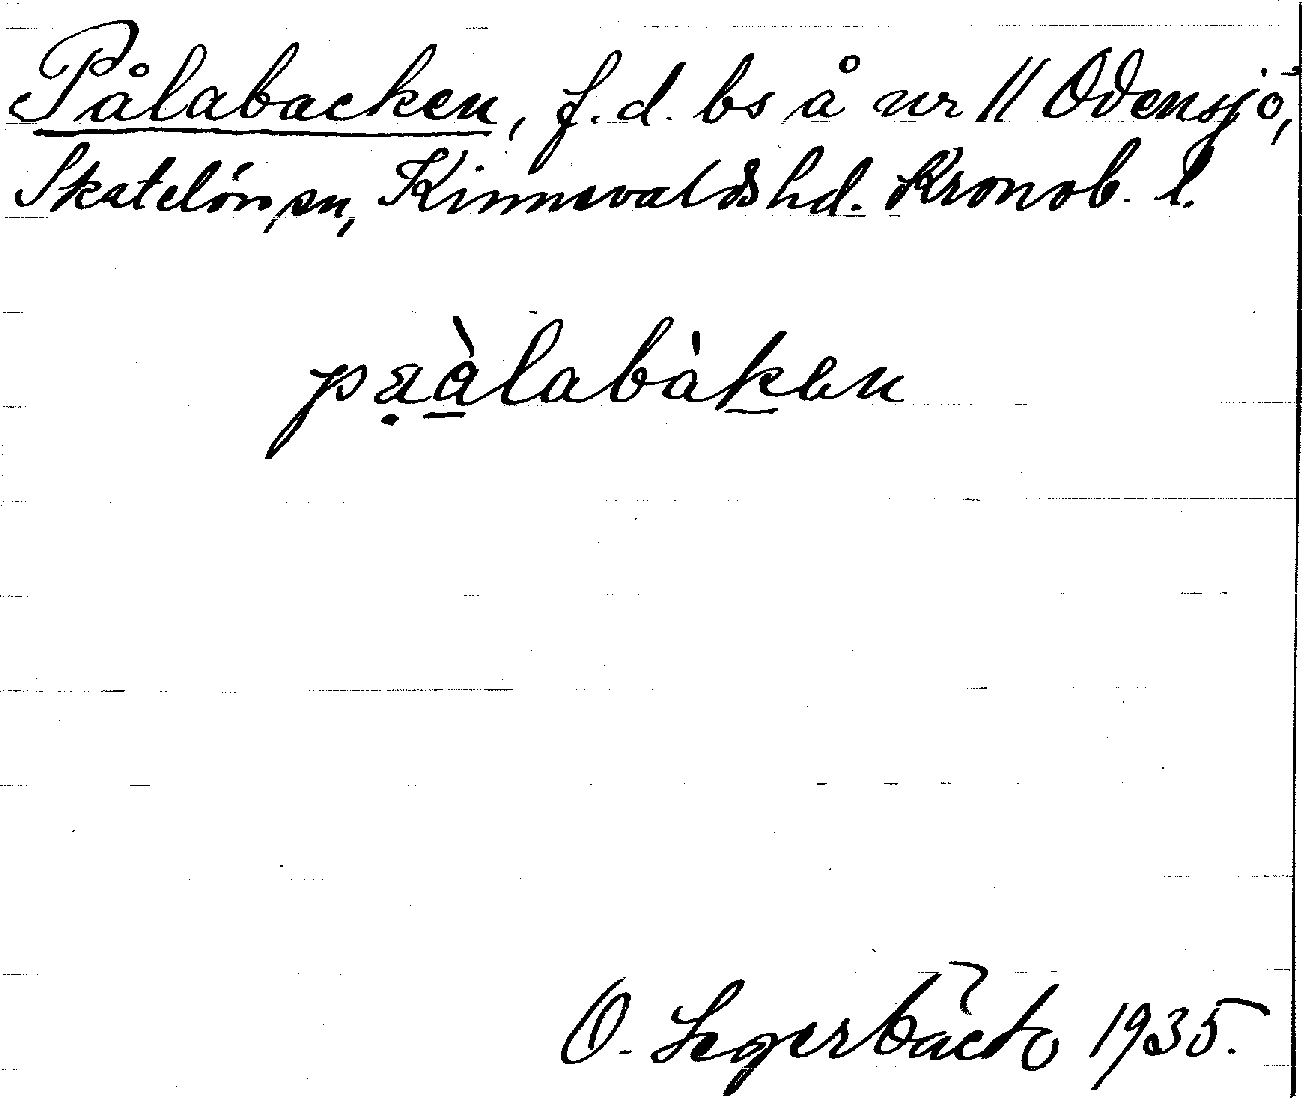 Pålabacken, f.d. bs å nr 11 Odensjö,
Skatelöv sn, Kinnevalds hd. Kronob. l.
pa̤à̲labàk̲en
O. Segerbäck 1935.